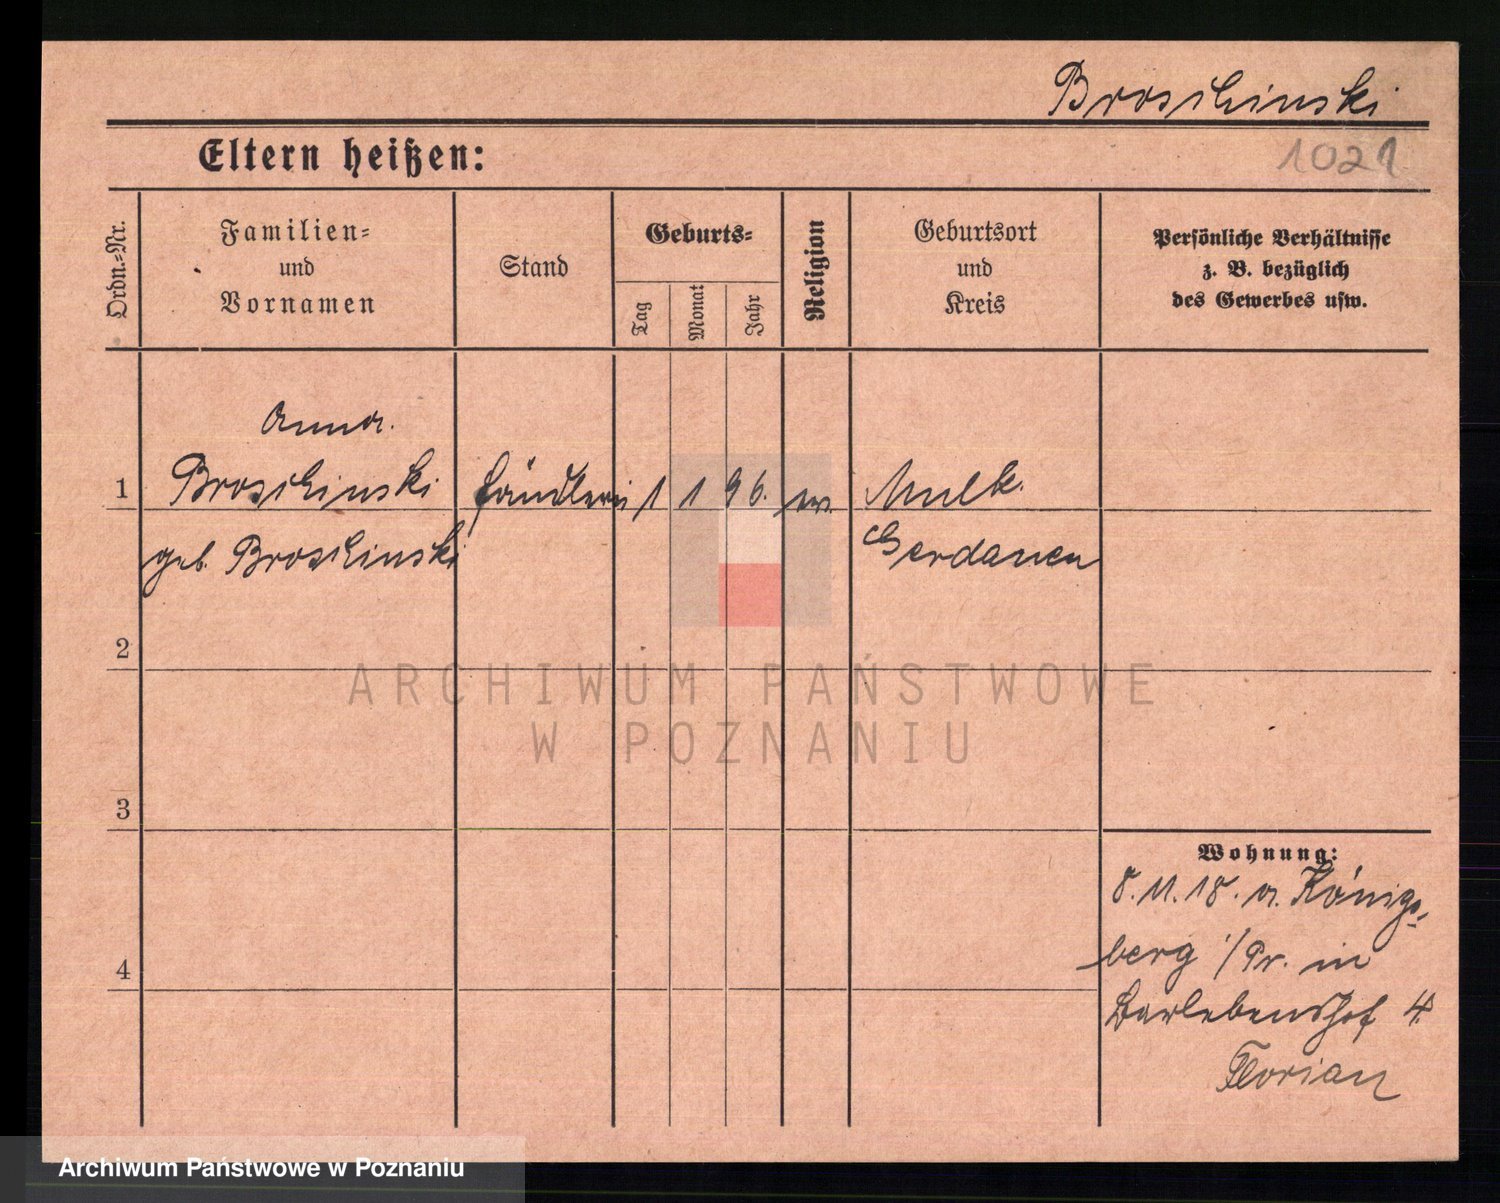 Broschinski
1021
Eltern heißen:
Ordn.-Nr.
Familien-
und
Vornamen
Stand
Geburts-
Tag
Monat
Jahr
Religion
Geburtsort
und
Kreis
Persönliche Verhältnisse
z. B. bezüglich
des Gewerbes usw.
Anna
1 Broschinski Händlerin 1 1 96. ev. Mulk.
geb. Broschinski Gerdauen
2
3
4
Wohnung:
8.11.18. a. Königs-
berg i/Pr. in
Barlebenshof 4.
Florian
ARCHIWUM PAŃSTWOWE
W POZNANIU
Archiwum Państwowe w Poznaniu